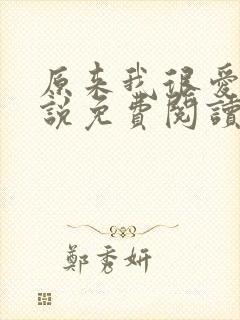 原来我很爱
說免費閱讀
鄭秀妍